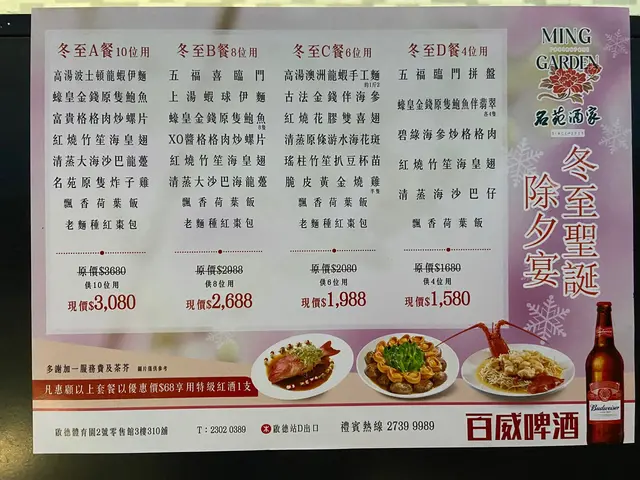 MING
GARDEN
名苑酒家
冬至聖誕
除夕宴
冬至A餐 10位用
高湯波士頓龍蝦伊麵
蠔皇金錢原隻鮑魚
富貴格格肉炒螺片
紅燒竹笙海皇翅
清蒸大海沙巴龍躉
名苑原隻炸子雞
飄香荷葉飯
老麵種紅棗包
原價$3680
供10位用
現價$3,080
冬至B餐 8位用
五福喜臨門
上湯蝦球伊麵
蠔皇金錢原隻鮑魚
8隻
XO醬格格肉炒螺片
紅燒竹笙海皇翅
清蒸大海沙巴龍躉
飄香荷葉飯
老麵種紅棗包
原價$2988
供8位用
現價$2,688
冬至C餐 6位用
高湯澳洲龍蝦手工麵
約1斤2
古法金錢伴海參
紅燒花膠雙喜翅
清蒸原條游水海花斑
瑤柱竹笙扒豆杯苗
脆皮黃金燒雞
半隻
飄香荷葉飯
老麵種紅棗包
原價$2080
供6位用
現價$1,988
冬至D餐 4位用
五福臨門拼盤
蠔皇金錢原隻鮑魚伴翡翠
各4隻
碧綠海參炒格格肉
紅燒竹笙海皇翅
清蒸海沙巴仔
飄香荷葉飯
原價$1680
供4位用
現價$1,580
多謝加一服務費及茶芥 圖片僅供參考
凡惠顧以上套餐以優惠價$68享用特級紅酒1支
啟德體育園2號零售館3樓310舖
T：2302 0389
啟德站D出口
禮賓熱線 2739 9989
百威啤酒
Budweiser